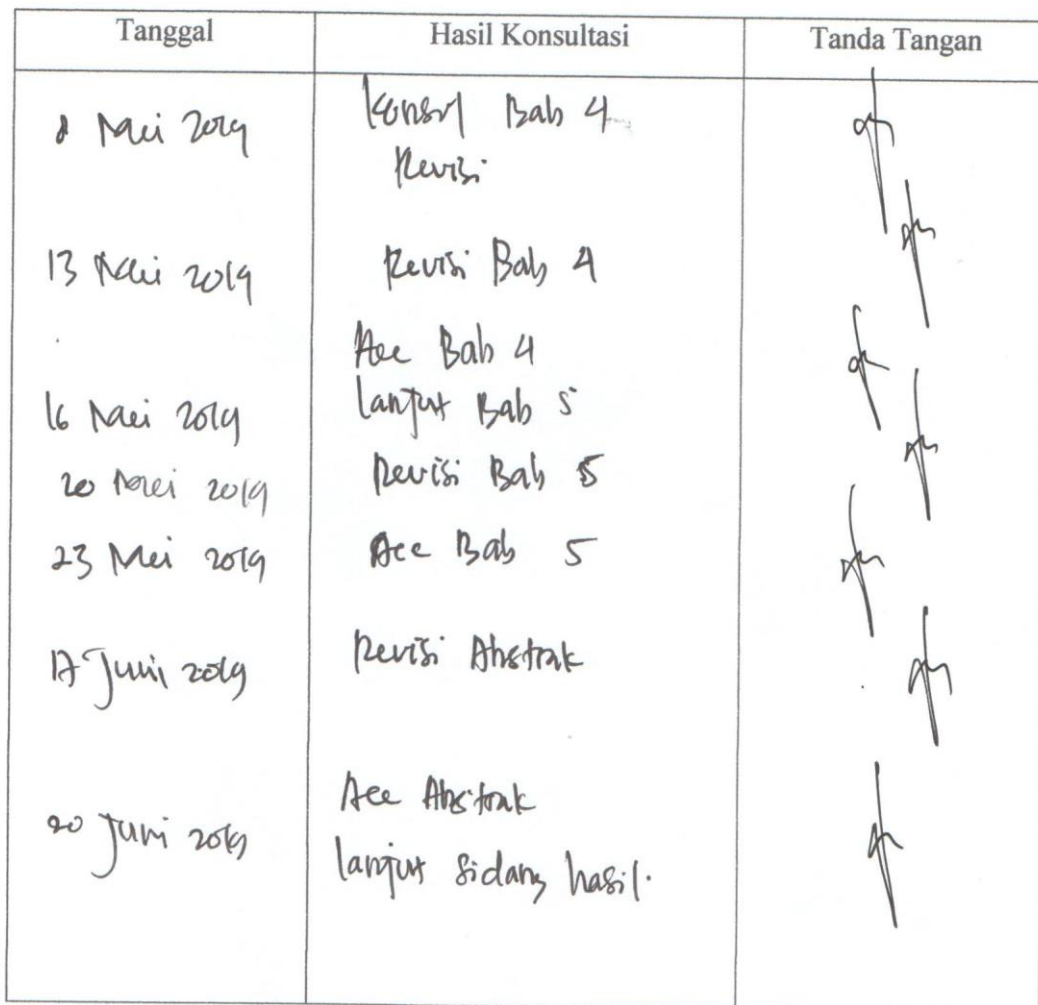 Tanggal Hasil Konsultasi Tanda Tangan
8 Mei 2019 Konsul Bab 4
Revisi
13 Mei 2019 Revisi Bab 4
Acc Bab 4
16 Mei 2019 lanjut Bab 5
20 Mei 2019 Revisi Bab 5
23 Mei 2019 Acc Bab 5
17 Juni 2019 Revisi Abstrak
Acc Abstrak
20 Juni 2019
lanjut sidang hasil.